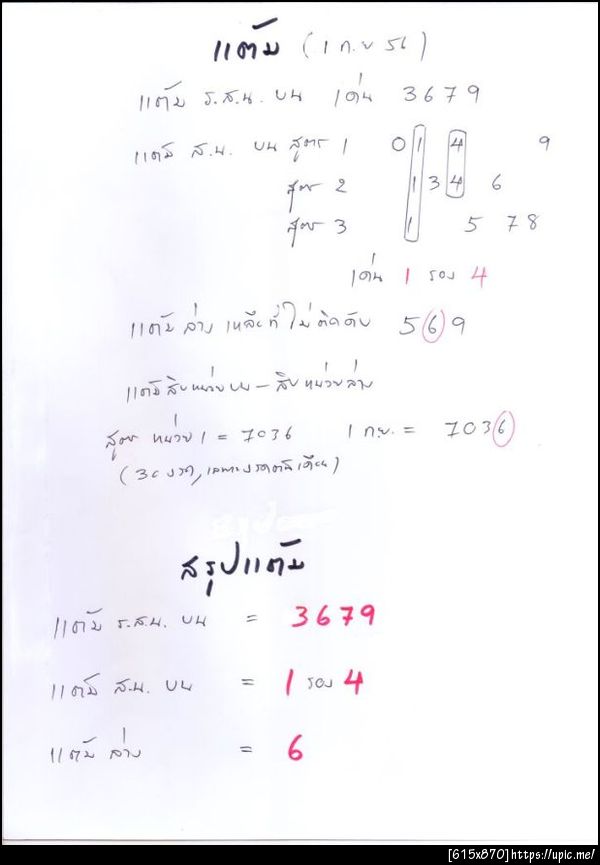 แต้ม (1 ก.ย 56)
แต้ม ร.ส.น. บน เด่น 3679
แต้ม ส.น. บน สูตร 1 0 1 4 9
สูตร 2 1 3 4 6
สูตร 3 1 5 7 8
เด่น 1 รอง 4
แต้ม ล่าง เหลือที่ไม่ติดดับ 5 6 9
แต้มสิบหน่วยบน - สิบหน่วยล่าง
สูตร หน่วย 1 = 7036 1 ก.ย. = 7036
(30 งวด, เฉพาะงวดต้นเดือน)
สรุปแต้ม
แต้ม ร.ส.น. บน = 3679
แต้ม ส.น. บน = 1 รอง 4
แต้ม ล่าง = 6
[615x870]https://upic.me/